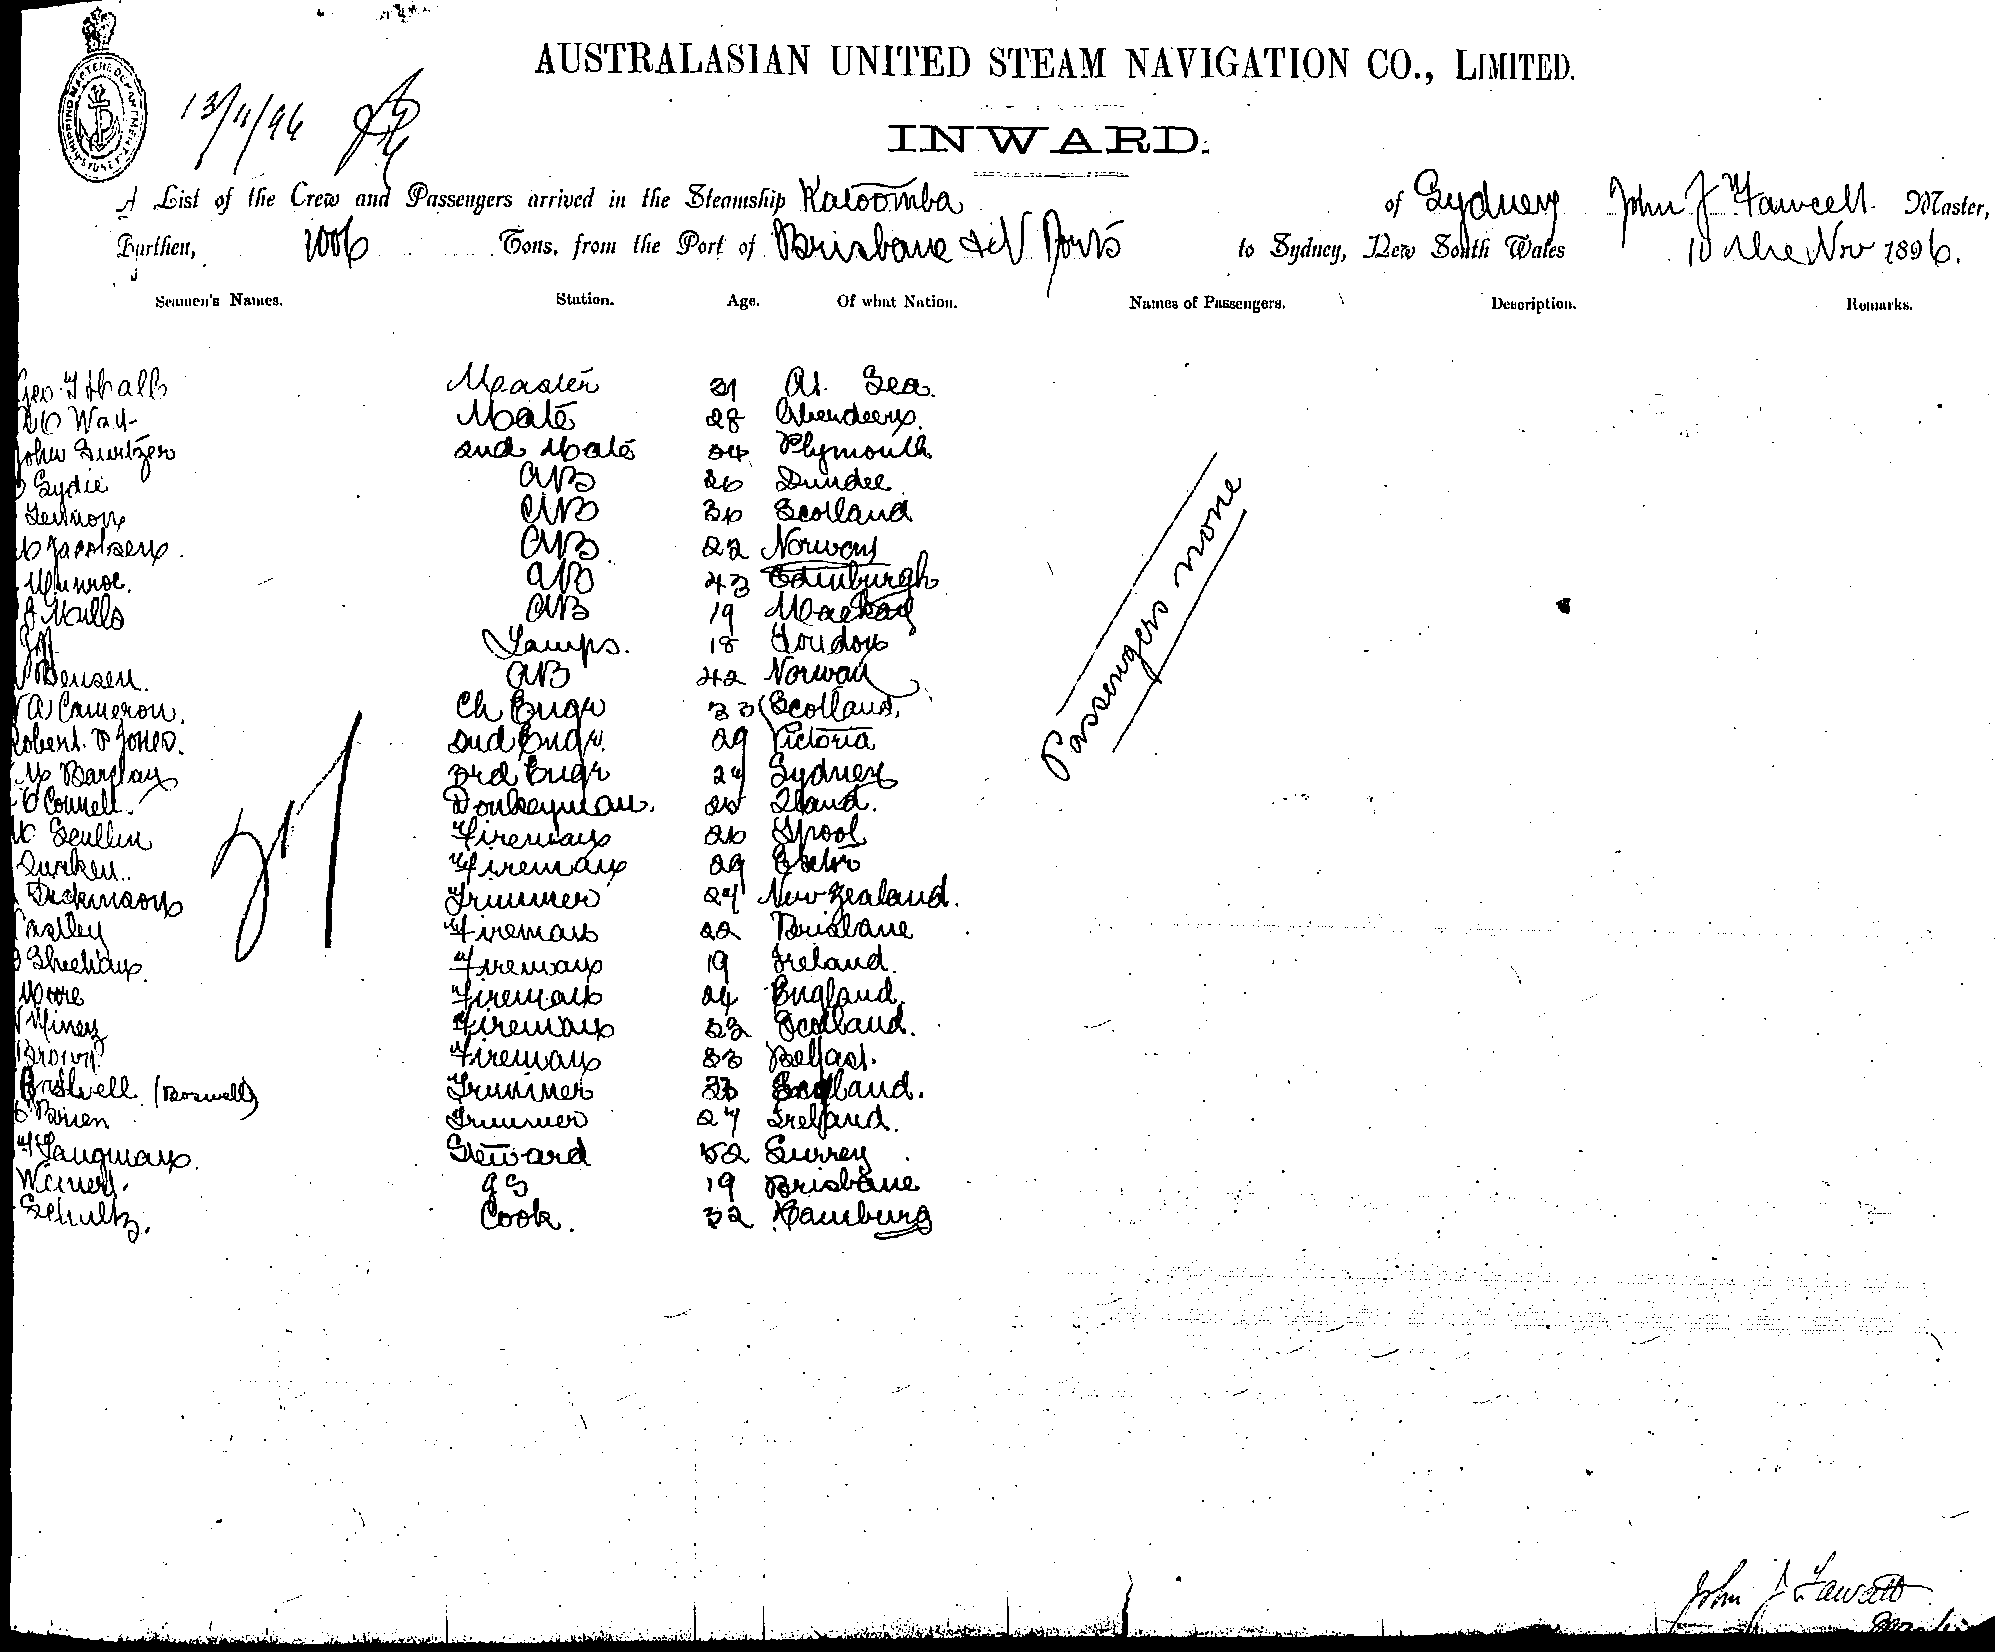 AUSTRALASIAN UNITED STEAM NAVIGATION CO., LIMITED.
13/11/96
INWARD.
A List of the Crew and Passengers arrived in the Steamship Katoomba of Sydney John J Fawcett Master,
Burthen, 1006 Tons, from the Port of Brisbane Ports to Sydney, New South Wales 10 the Nov 1896.
Seamen's Names. Station. Age. Of what Nation. Names of Passengers. Description. Remarks.
Geo Master 31 At Sea.
Way Mate 28 Aberdeen.
John 2nd Mate Plymouth
AB 26 Dundee
AB 36 Scotland
Jacobsen. AB 22 Norway
Munroe. AB 43 Edinburgh
Mills AB 19 Mackay
Lamps. 18 London
Bensen. AB 42 Norway
A Cameron. Ch Engr 33 Scotland.
Robert. Jones. 2nd Engr. 29 Victoria
Barclay 3rd Engr 27 Sydney
O'Connell. Donkeyman.
Scullin Fireman 26 L'pool
Fireman 29
Dickinson Trimmer 27 New Zealand.
Fireman 22 Brisbane
Sheehan. Fireman 19 Ireland.
Moore Fireman 24 England.
Fireman Scotland.
Brown Fireman 33 Belfast.
(Boswell) Trimmer 33 England.
O'Brien Trimmer 27 Ireland.
Langman. Steward 52 Surrey
19 Brisbane
Schultz. Cook. 32 Hamburg
27
Passengers none
John J Fawcett